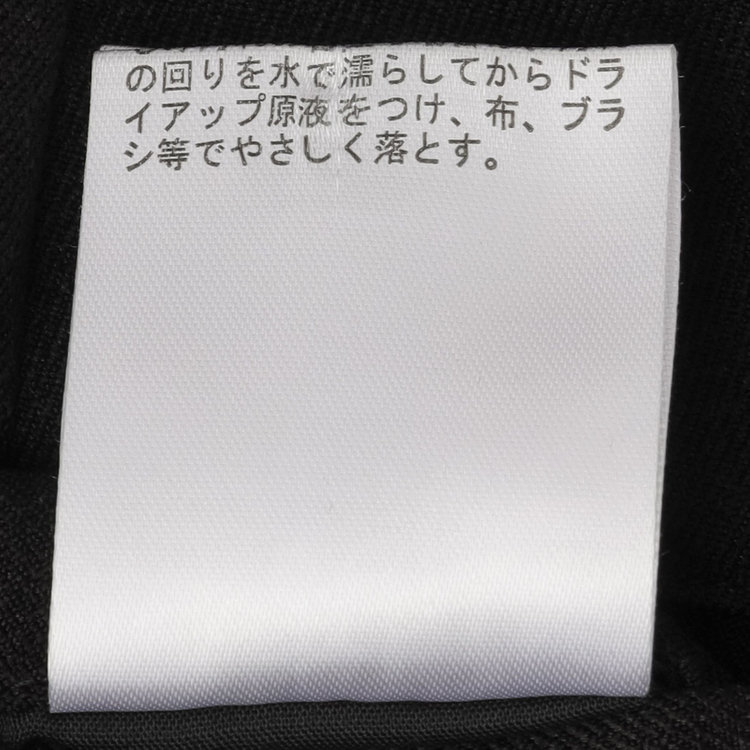 の回りを水で濡らしてからドラ
イアップ原液をつけ、布、ブラ
シ等でやさしく落とす。